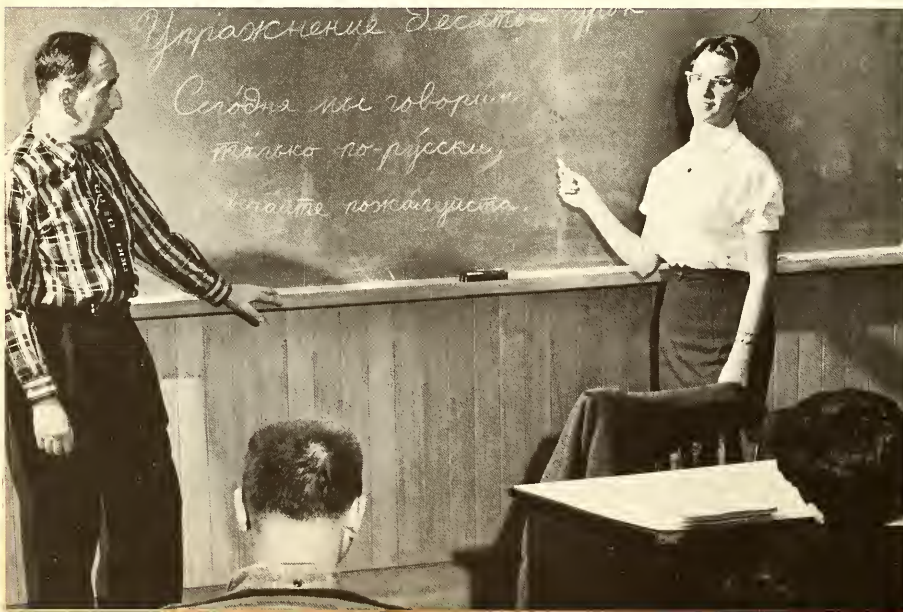 Упражнение десятое урок
Сего́дня мы говорим
то́лько по-ру́сски,
пожа́луиста.